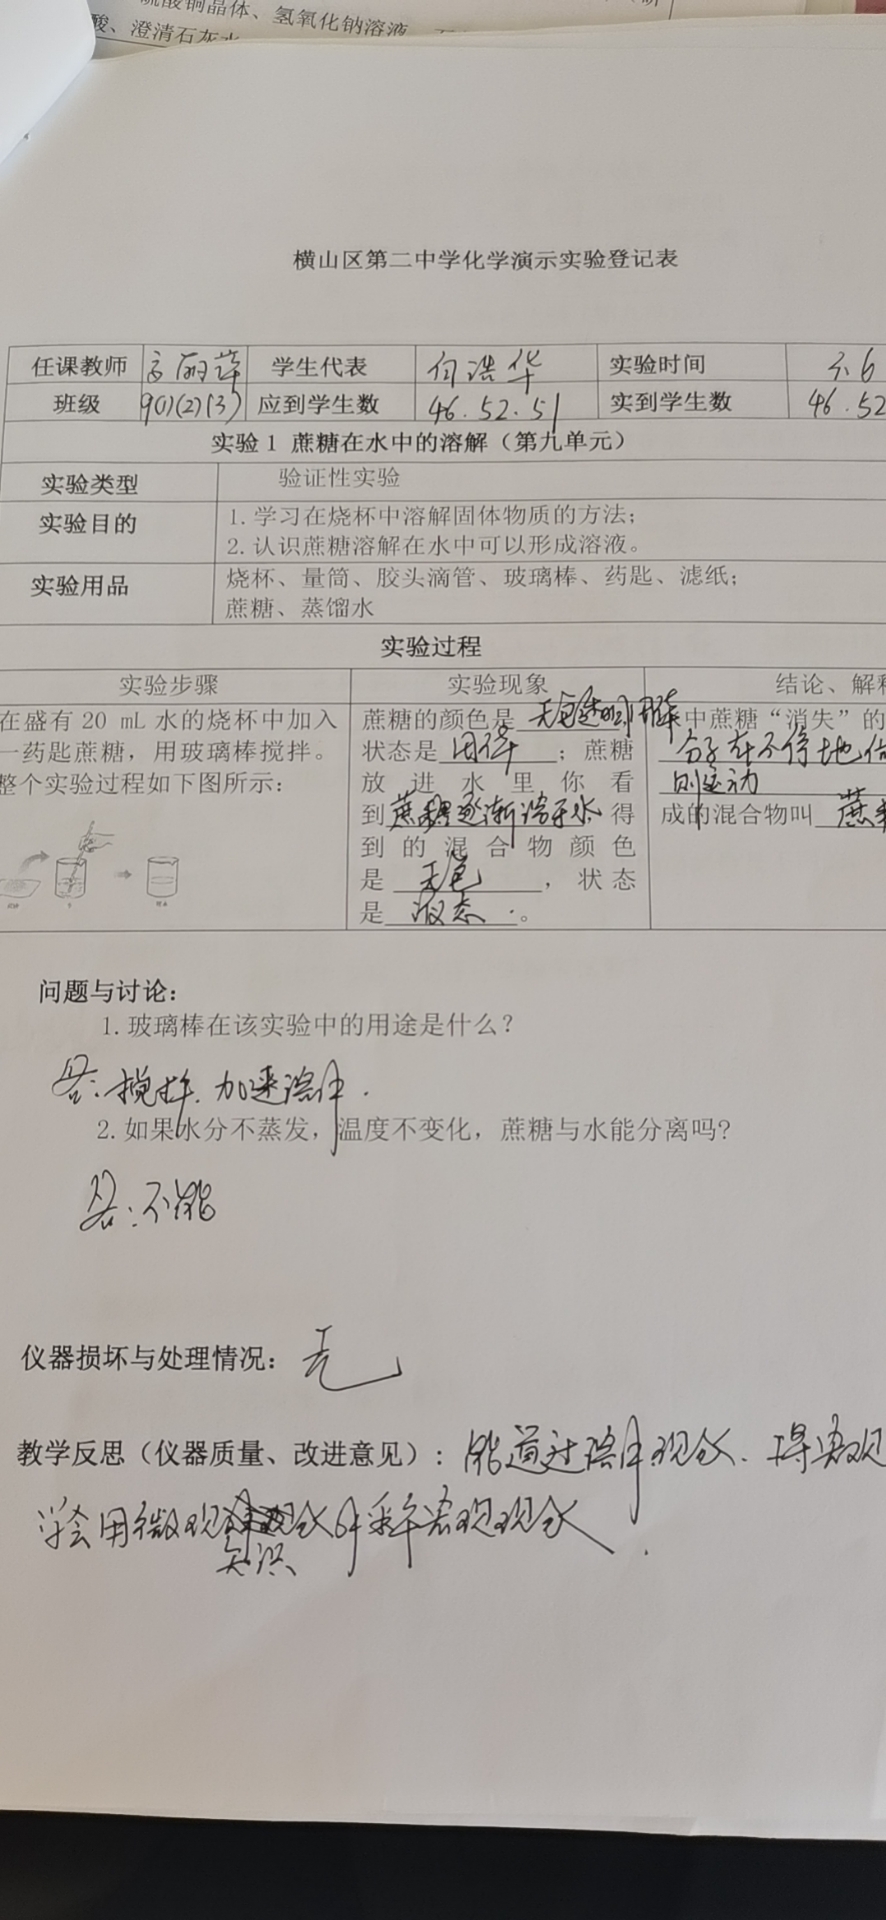 硫酸铜晶体、氢氧化钠溶液、
酸、澄清石灰水
横山区第二中学化学演示实验登记表
任课教师 高丽萍 学生代表 何浩华 实验时间
班级 9(1)(2)(3) 应到学生数 46.52.51 实到学生数 46.52
实验1 蔗糖在水中的溶解（第九单元）
实验类型 验证性实验
实验目的 1.学习在烧杯中溶解固体物质的方法；
2.认识蔗糖溶解在水中可以形成溶液。
实验用品 烧杯、量筒、胶头滴管、玻璃棒、药匙、滤纸；
蔗糖、蒸馏水
实验过程
实验步骤 实验现象 结论、解释
在盛有20 mL水的烧杯中加入 蔗糖的颜色是 无色透明 中蔗糖“消失”的
一药匙蔗糖，用玻璃棒搅拌。 状态是 固体 ；蔗糖 分子在不停地做
整个实验过程如下图所示： 放进水里你看 则运动
到 蔗糖逐渐溶于水 得 成的混合物叫 蔗
到的混合物颜色
是 无色 ，状态
是 液态 。
问题与讨论：
1.玻璃棒在该实验中的用途是什么？
答：搅拌.加速溶解.
2.如果水分不蒸发，温度不变化，蔗糖与水能分离吗?
答：不能
仪器损坏与处理情况：无
教学反思（仪器质量、改进意见）：能通过溶解现象.
学会用微观知识解释宏观现象.